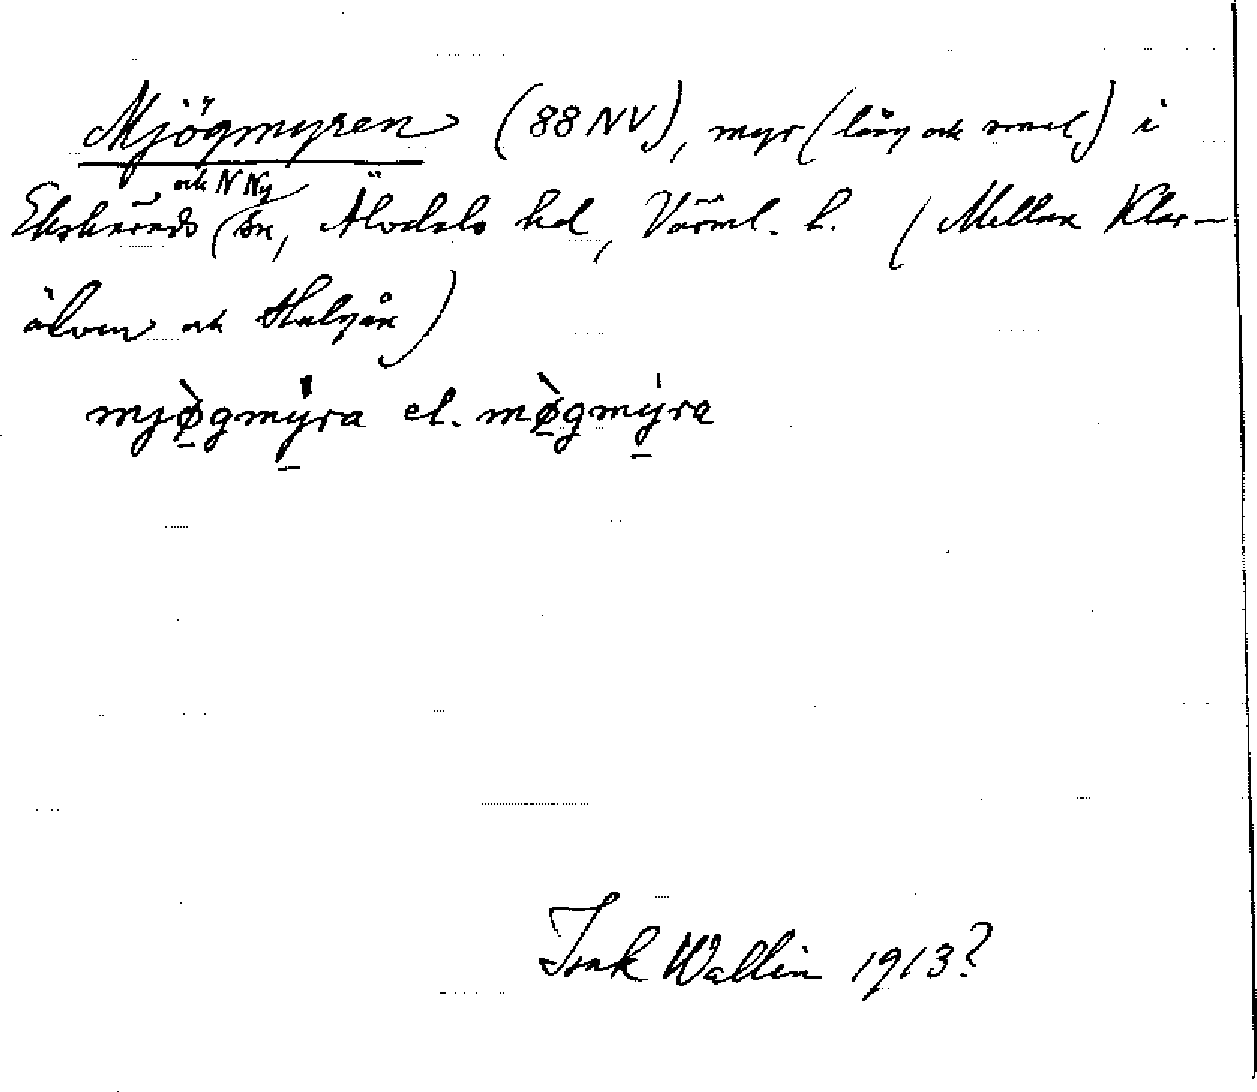 Mjögmyren (88 NV), myr (lång ock smal) i
ock N Ny
Ekshärads sn, Älvdals hd, Värml. l. (Mellan Klar-
älven ock Halgån)
mjø̀gmýra el. mø̀gmýra
Isak Wallin 1913?